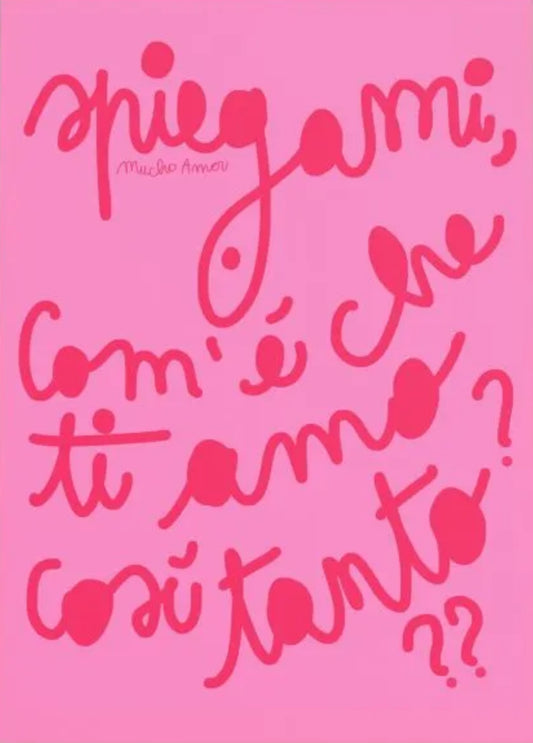 spiegami,
Mucho Amor
com'é che
ti amo?
così tanto
??